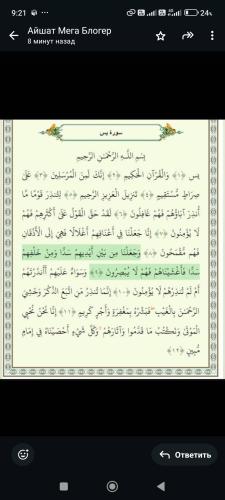 9:21
24%
Айшат Мега Блогер
8 минут назад
سورة يس
بِسْمِ اللَّهِ الرَّحْمَٰنِ الرَّحِيمِ
يس ﴿١﴾ وَالْقُرْآنِ الْحَكِيمِ ﴿٢﴾ إِنَّكَ لَمِنَ الْمُرْسَلِينَ ﴿٣﴾ عَلَىٰ
صِرَاطٍ مُّسْتَقِيمٍ ﴿٤﴾ تَنزِيلَ الْعَزِيزِ الرَّحِيمِ ﴿٥﴾ لِتُنذِرَ قَوْمًا مَّا
أُنذِرَ آبَاؤُهُمْ فَهُمْ غَافِلُونَ ﴿٦﴾ لَقَدْ حَقَّ الْقَوْلُ عَلَىٰ أَكْثَرِهِمْ فَهُمْ
لَا يُؤْمِنُونَ ﴿٧﴾ إِنَّا جَعَلْنَا فِي أَعْنَاقِهِمْ أَغْلَالًا فَهِيَ إِلَى الْأَذْقَانِ
فَهُم مُّقْمَحُونَ ﴿٨﴾ وَجَعَلْنَا مِن بَيْنِ أَيْدِيهِمْ سَدًّا وَمِنْ خَلْفِهِمْ
سَدًّا فَأَغْشَيْنَاهُمْ فَهُمْ لَا يُبْصِرُونَ ﴿٩﴾ وَسَوَاءٌ عَلَيْهِمْ أَأَنذَرْتَهُمْ
أَمْ لَمْ تُنذِرْهُمْ لَا يُؤْمِنُونَ ﴿١٠﴾ إِنَّمَا تُنذِرُ مَنِ اتَّبَعَ الذِّكْرَ وَخَشِيَ
الرَّحْمَٰنَ بِالْغَيْبِ فَبَشِّرْهُ بِمَغْفِرَةٍ وَأَجْرٍ كَرِيمٍ ﴿١١﴾ إِنَّا نَحْنُ نُحْيِي
الْمَوْتَىٰ وَنَكْتُبُ مَا قَدَّمُوا وَآثَارَهُمْ وَكُلَّ شَيْءٍ أَحْصَيْنَاهُ فِي إِمَامٍ
مُّبِينٍ ﴿١٢﴾
Ответить